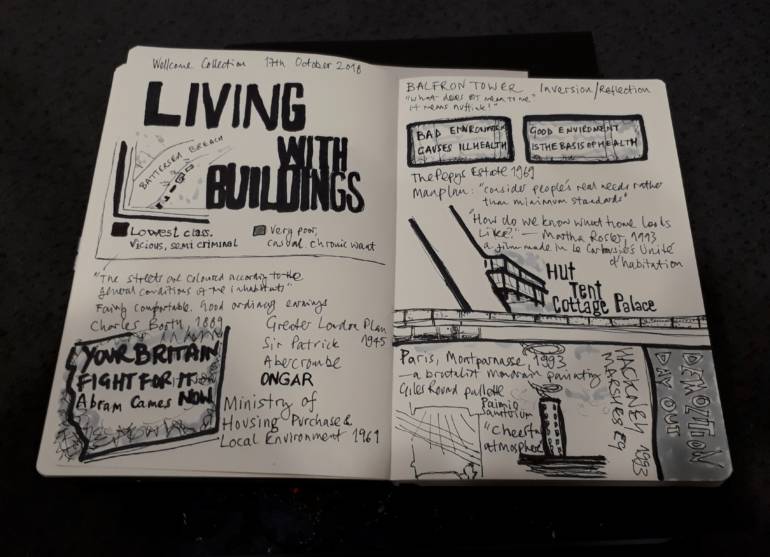 Wellcome Collection 17th October 2018
LIVING
WITH
BUILDINGS
BATTERSEA BREACH
Lowest class.
Vicious, semi criminal
Very poor,
casual. chronic want
"The streets are coloured according to the
general conditions of the inhabitants"
Fairly comfortable. Good ordinary earnings
Charles Booth 1889
YOUR BRITAIN
FIGHT FOR IT
NOW
Abram Games
Greater London Plan
1945
Sir Patrick
Abercrombe
ONGAR
Ministry of
Housing Purchase &
Local Environment 1961
BALFRON TOWER Inversion/Reflection
"What does it mean to me"
it means nuffink!"
BAD ENVIRONMENT
CAUSES ILL HEALTH
GOOD ENVIROMENT
IS THE BASIS OF HEALTH
The Pepys Estate 1969
Manplan: "consider people's real needs rather
than minimum standards"
"How do we know what home looks
Like?" — Martha Rosler, 1993
a film made in Le Corbusier's Unité
d'habitation
Hut
Tent
Cottage Palace
Paris, Montparnasse, 1993
— a brutalist Mondrian painting
Giles Round pallette
Paimio
Sanitorium
atmosphere
HACKNEY
MARSHES E9 1993
DEMOLITION
DAY OUT